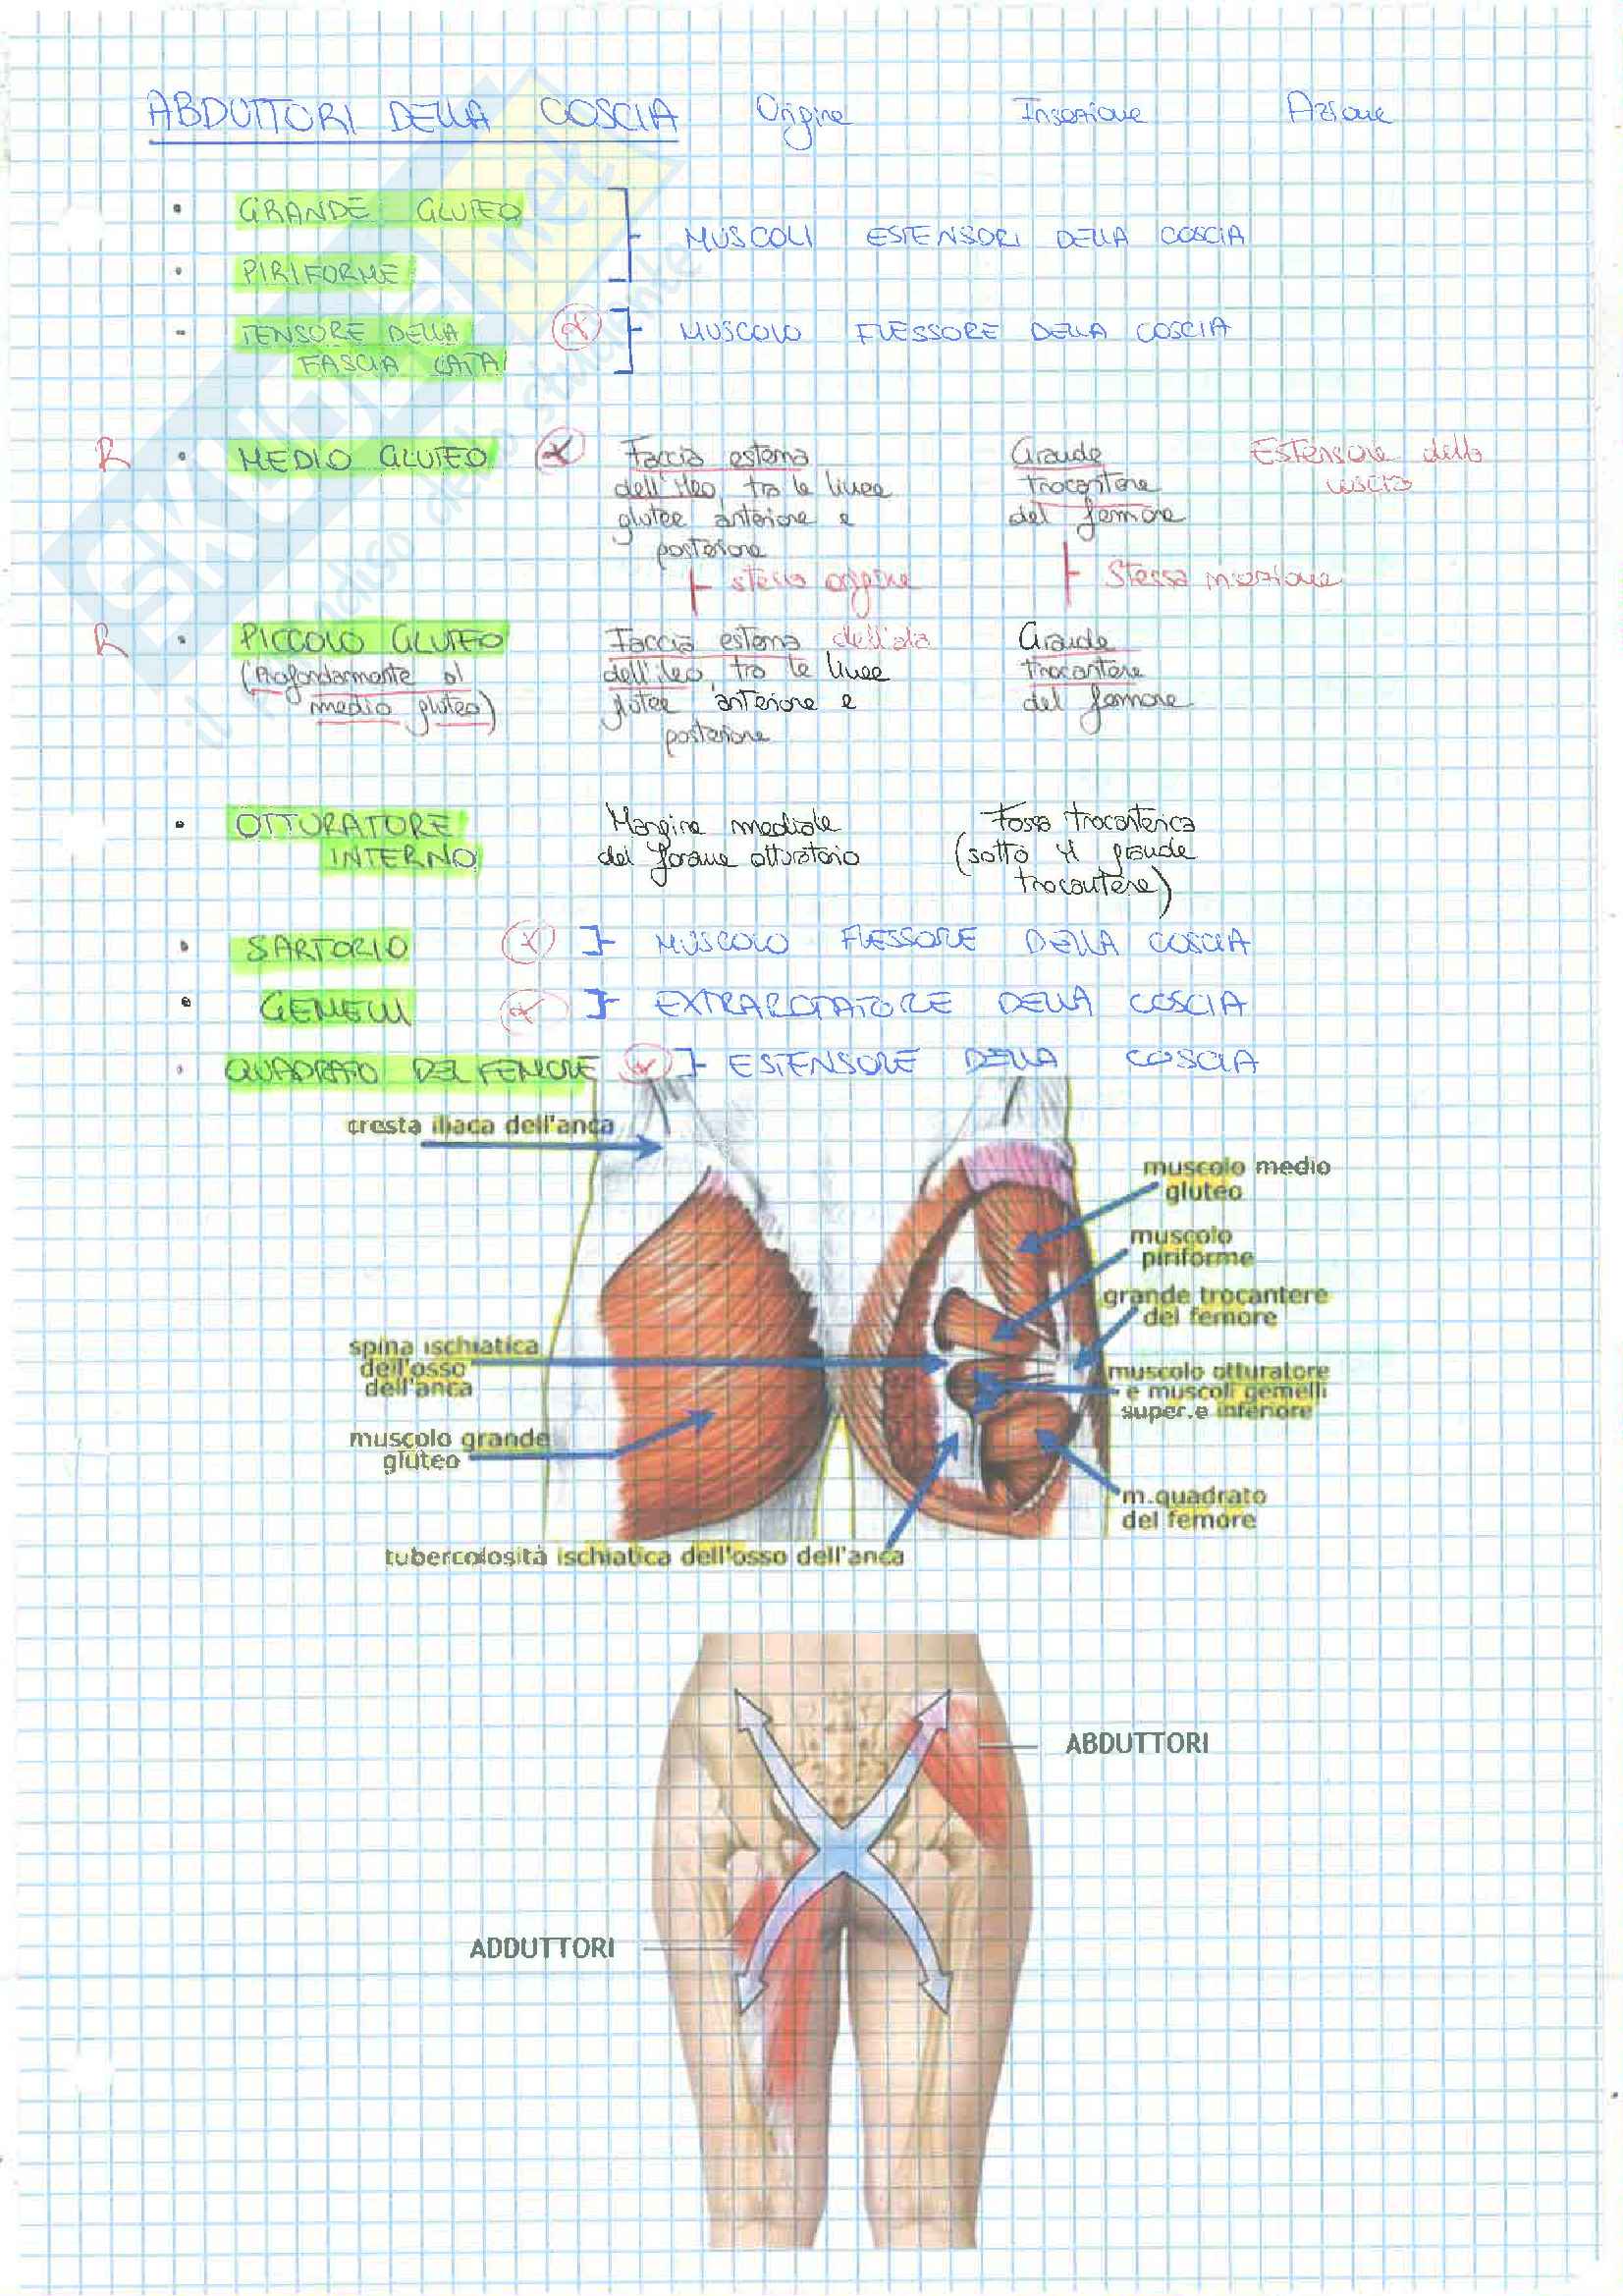 ABDUTTORI DELLA COSCIA Origine Inserzione Azione
• GRANDE GLUTEO
MUSCOLI ESTENSORI DELLA COSCIA
• PIRIFORME
- TENSORE DELLA MUSCOLO FLESSORE DELLA COSCIA
FASCIA LATA
R • MEDIO GLUTEO Faccia esterna Grande Estensore della
dell'ileo, tra le linee trocantere coscia
glutee anteriore e del femore
posteriore
stessa origine Stessa inserzione
R • PICCOLO GLUTEO Faccia esterna dell'ala Grande
(Profondamente al dell'ileo, tra le linee trocantere
medio gluteo) glutee anteriore e del femore
posteriore
• OTTURATORE Margine mediale Fossa trocanterica
INTERNO del forame otturatorio (sotto il grande
trocantere)
• SARTORIO MUSCOLO FLESSORE DELLA COSCIA
• GEMELLI EXTRAROTATORE DELLA COSCIA
• QUADRATO DEL FEMORE ESTENSORE DELLA COSCIA
cresta iliaca dell'anca
muscolo medio
gluteo
muscolo
piriforme
grande trocantere
del femore
spina ischiatica
dell'osso
dell'anca
muscolo otturatore
e muscoli gemelli
super.e inferiore
muscolo grande
gluteo
m.quadrato
del femore
tubercolosità ischiatica dell'osso dell'anca
ABDUTTORI
ADDUTTORI
SKUOLA.net